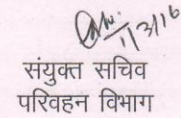 1/3/16
संयुक्त सचिव
परिवहन विभाग